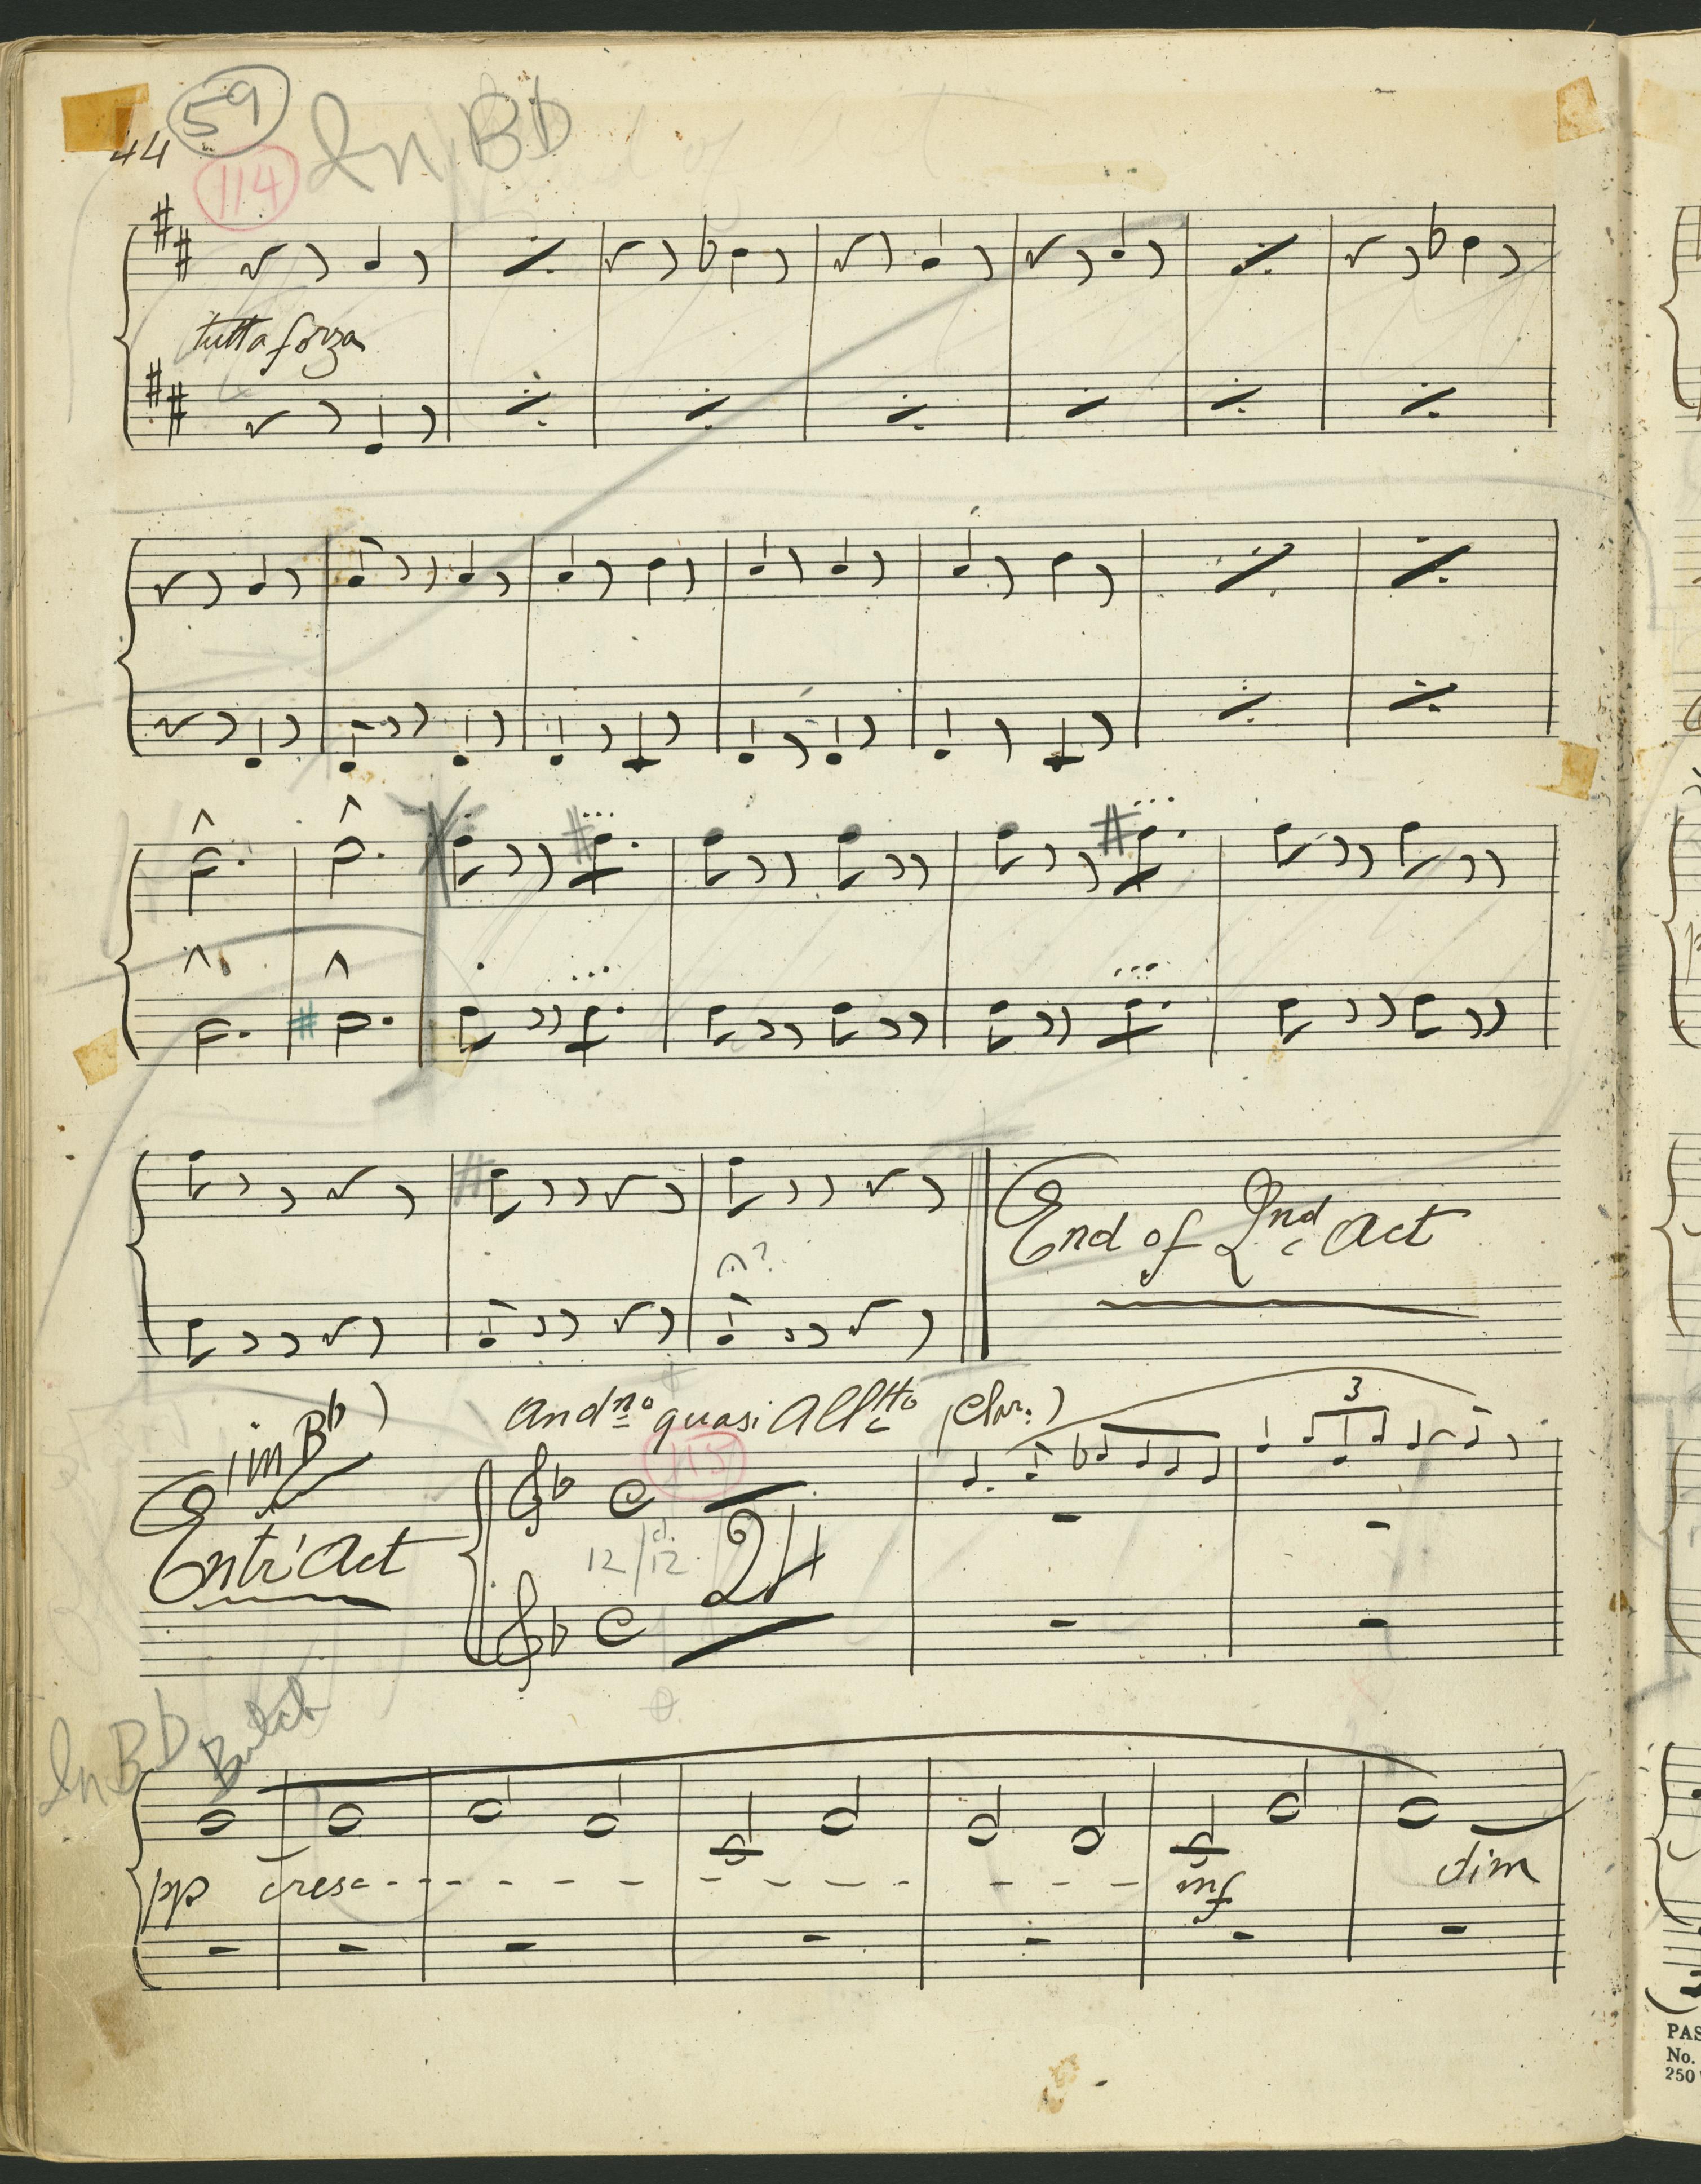 59
44
114
In Bb
tutta forza
End of 2nd Act
?
(in Bb)
Andno quasi Alltto (Clar:)
3
115
Entr'Act
12/12
24
In Bb
pp cresc - - - - - - - - - - - mf dim
PAS
No.
250